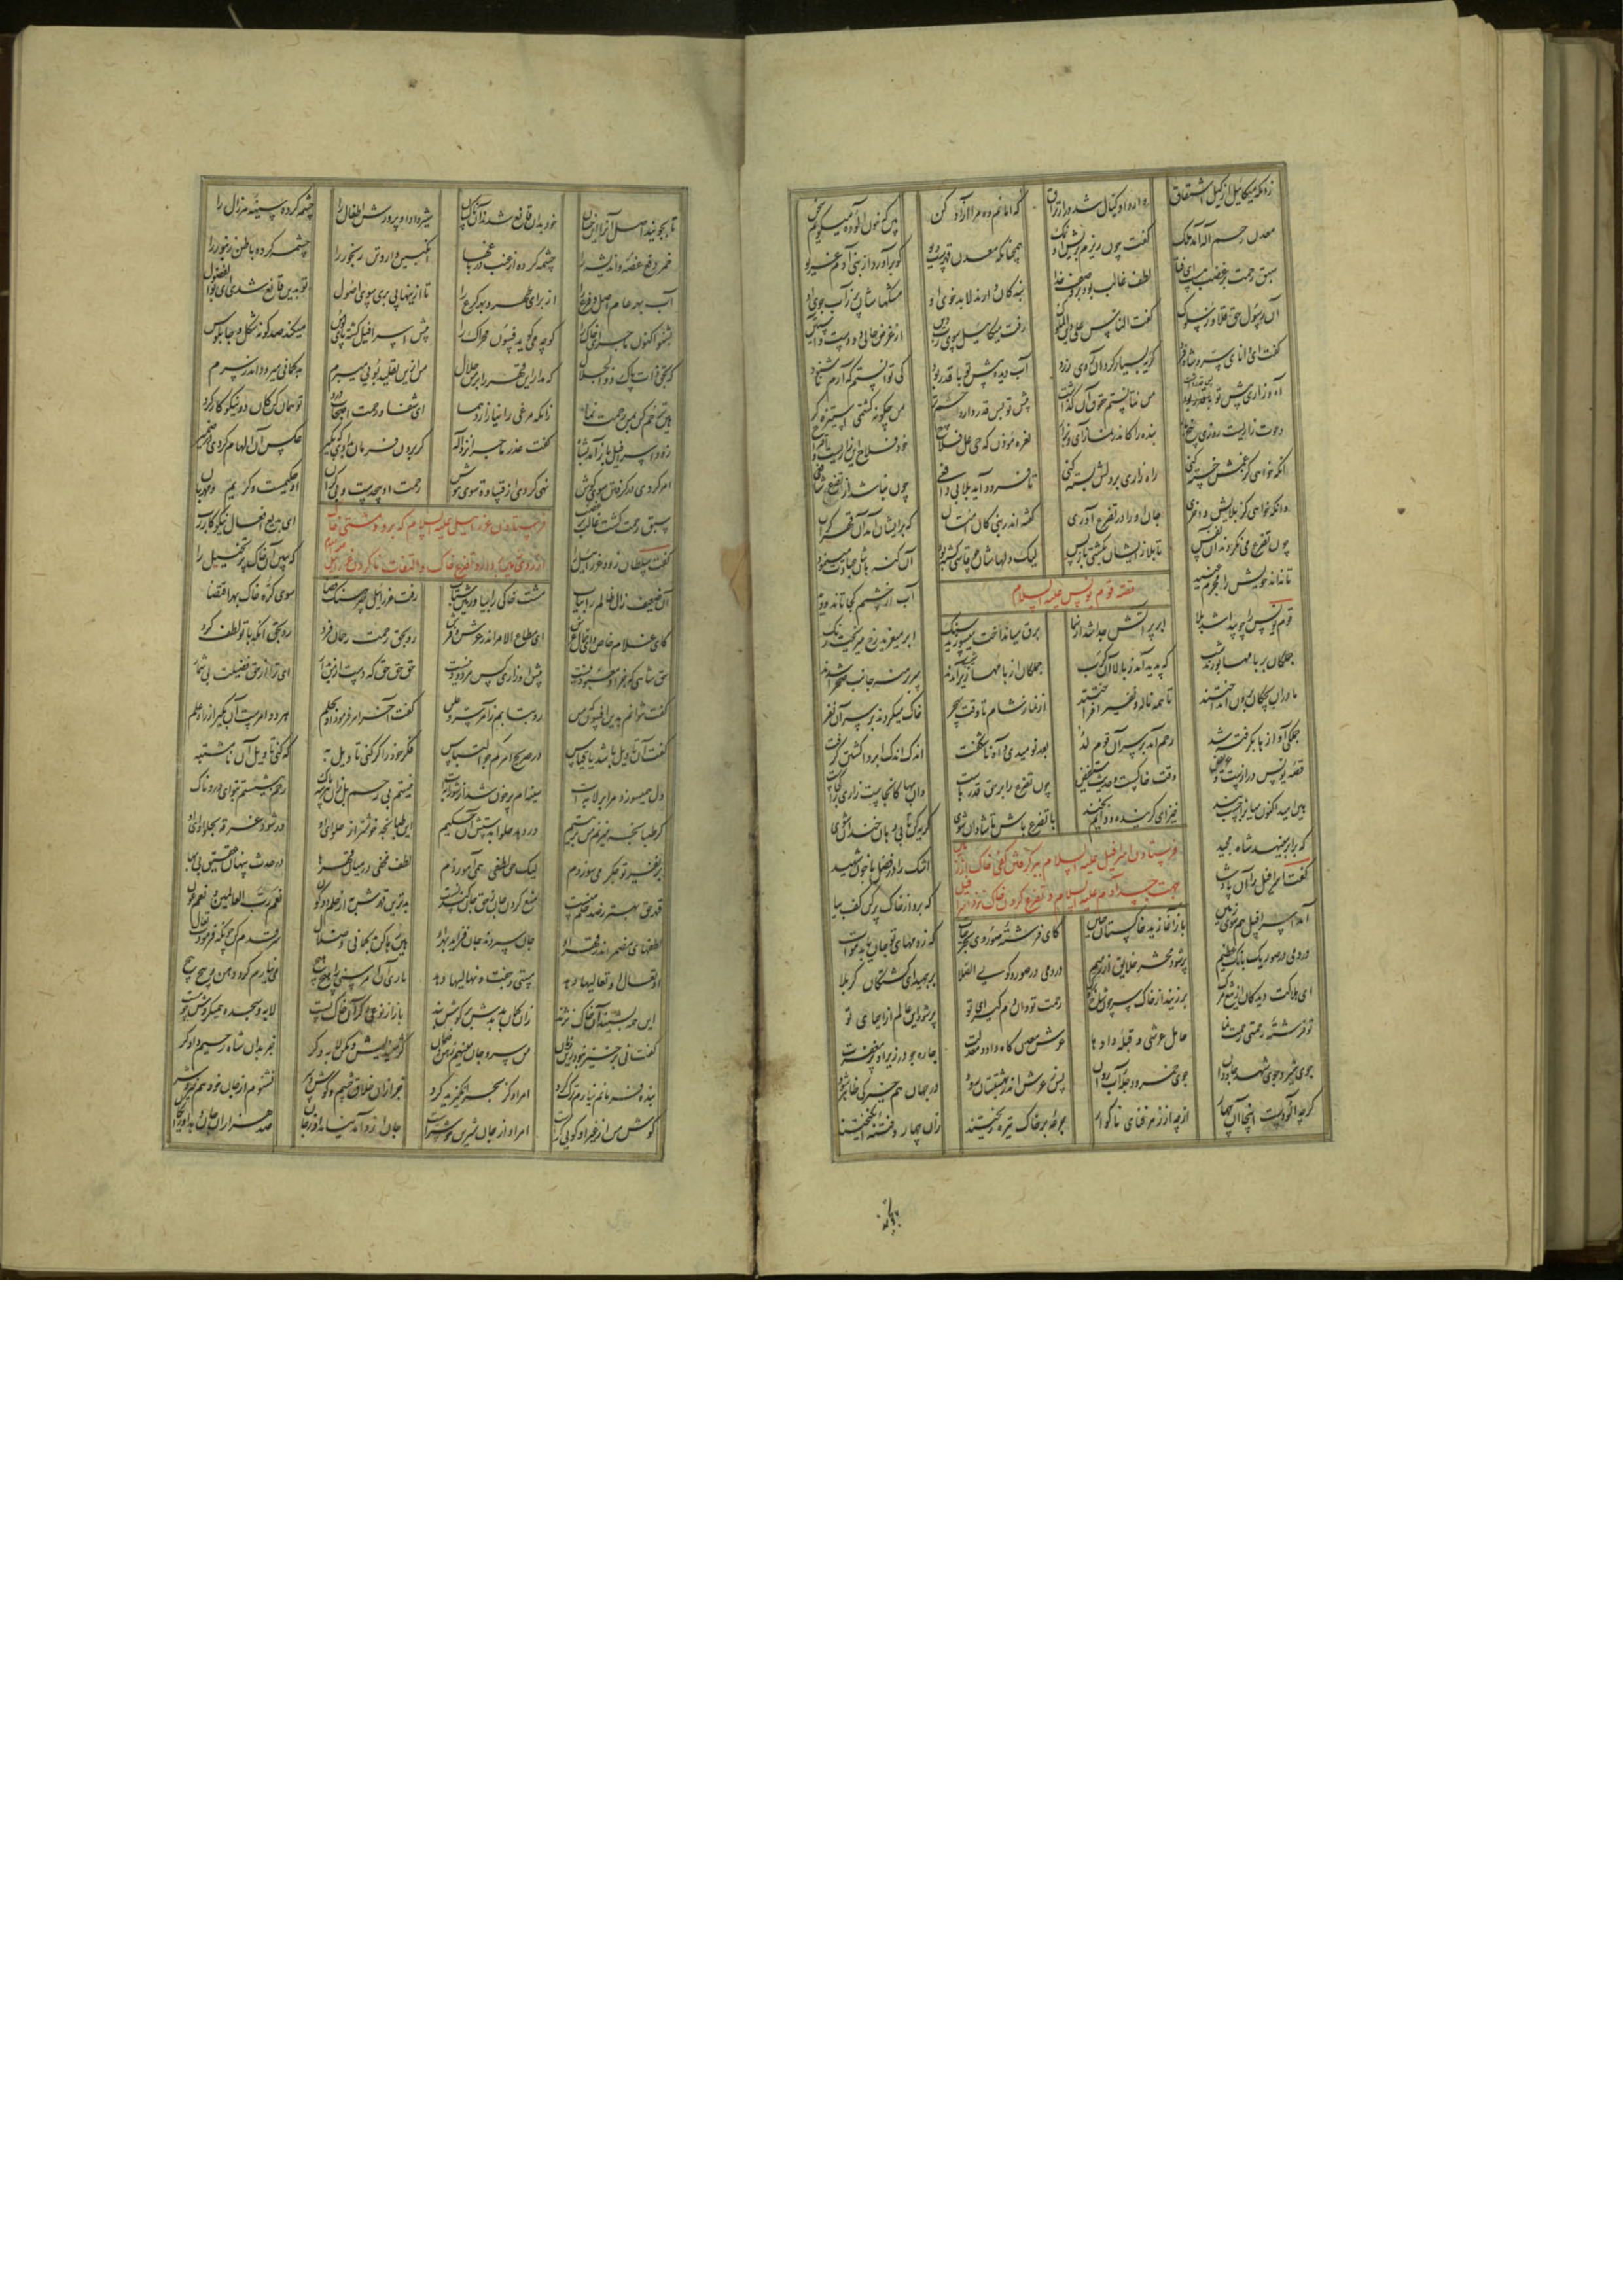 زانکه میکائیل از کیل اشتقاق دارد و کیال شد در ارتزاق که امانم ده مرا آزاد کن بین که خون آلوده میگویم سخن
معدن رحم اله آمد ملک گفت چون ریزم بر آن ریش این نمک همچنانکه معدن قهرست دیو کو برآورد از بنی آدم غریو
سبق رحمت بر غضب هست ای فتا لطف غالب بود در وصف خدا بندگان دارند لابد خوی او مشکهاشان پر ز آب جوی او
آن رسول حق قلاوز سلوک گفت الناس علی دین الملوک رفت میکائیل سوی رب دین از غرض خالی دو دست و آستین
گفت ای دانای سر و شاه فرد گریه بسیار کرد آن روی زرد آب دیده پیش تو با قدر بود کی توانستم که آرم ناشنود
آه و زاری پیش تو من نتانستم حقوق آن گذاشت پیش تو بس قدر دارد چشم تر من چگونه گشتمی استیزه گر
دعوت زاریست روزی پنج بار بنده را کاندر نماز آی و بزار نعره مؤذن که حی علی فلاح خود فلاح این زاریست و اقتراح
آنکه خواهی کز غمش خسته کنی راه زاری بر دلش بسته کنی تا فرود آید بلا بی دافعی چون نباشد از تضرع شافعی
وانکه خواهی کز بلایش واخری جان او را در تضرع آوری گفته اندر نبی کان امتان که بر ایشان آمد آن قهر گران
چون تضرع می نکردند آن نفس تا بلا زایشان بگشتی باز پس لیک دلهاشان چو قاسی گشته بود آن گنه هاشان عبادت مینمود
تا نداند خویش را مجرم عنید آب از چشمش کجا تاند دوید
قصه قوم یونس علیه السلام
قوم یونس را چو پیدا شد بلا ابر پر آتش جدا شد از سما برق میانداخت میسوزید سنگ ابر میغرید رخ میریخت رنگ
جملگان بر بامها بودند شب که پدید آمد ز بالا آن کرب جملگان از بامها زیر آمدند سر برهنه جانب صحرا شدند
مادران بچگان برون انداختند تا همه ناله و نفیر افراختند از نماز شام تا وقت سحر خاک میکردند بر سر آن نفر
جملگی آوازها بگرفته شد رحم آمد بر سر آن قوم لد بعد نومیدی و آه ناشکفت اندک اندک ابر وا گشتن گرفت
قصه یونس درازست و عریض وقت خاکست و حدیث مستفیض چون تضرع را بر حق قدرهاست وان بها کانجاست زاری را کجاست
هین امید اکنون میان را چست بند خیز ای گرینده و دایم بخند با تضرع باش تا شادان شوی گریه کن تا بی دهان خندان شوی
که برابر مینهد شاه مجید اشک را در فضل با خون شهید
فرستادن اسرافیل علیه السلام که برو کفی خاک از زمین
جهت جسد آدم علیه السلام و تضرع کردن خاک نزد اسرافیل
گفت اسرافیل را آن پادشا که برو از خاک پر کن کف بیا
آمد اسرافیل هم سوی زمین باز آغازید خاکستان حنین کای فرشته صور و ای بحر حیات که ز دمهای تو جان یابد موات
دردمی در صور یک بانگ عظیم پر شود محشر خلایق از رمیم دردمی در صور گویی الصلا برجهید ای کشتگان کربلا
ای هلاکت دیدگان از تیغ مرگ برزنید از خاک سر چون شاخ و برگ رحمت تو وان دم گیرای تو پر شود این عالم از احیای تو
تو فرشته رحمتی رحمت نما حامل عرشی و قبله دادها عرش معدنگاه داد و معدلت چار جو در زیر او پر مغفرت
جوی شیر و جوی شهد جاودان جوی خمر و دجله آب روان پس ز عرش اندر بهشتستان رود در جهان هم چیزکی ظاهر شود
گرچه آلودست اینجا آن چهار از چه از زهر فنای ناگوار جرعه بر خاک تیره ریختند زان چهار و فتنه انگیختند
تا بجویند
تا بجویند اصل آنرا این خسان خود بدان قانع شدند آن ناکسان شیر داد او پرورش اطفال را چشمه کرده سینه هر زال را
خمر دفع غصه و اندیشه را چشمه کرده از عنب در باغها انگبین دارو تن رنجور را چشمه کرده باطن زنبور را
آب بهر عام اصل و فرع را از برای طهر و بهر کرع را تا ازینها پی بری سوی اصول تو بدین قانع شدی ای بوالفضول
بشنو اکنون ماجرای خاک را کو چه می گوید فسون محراک را پیش اسرافیل گشته او عبوس میکند صد گونه شکل و چاپلوس
که بحق ذات پاک ذوالجلال که مدار این قهر را بر من حلال من ازین تقلیب بویی میبرم بدگمانی میرود اندر سرم
هین ترحم کن ببین رحمت نما زانکه مرغی را نیازارد هما ای شفا و رحمت اصحاب درد تو همان کن کان دو نیکوکار کرد
زود اسرافیل باز آمد بشاه گفت عذر و ماجرا نزد اله کز برون فرمان بدادی که بگیر عکس آن الهام کردی در ضمیر
امر کردی در گرفتن سوی گوش نهی کردی از قساوت سوی هوش رحمت او بیحدست و بی کران او حکیمست و کریم و مهربان
سبق رحمت گشت غالب بر غضب ای بدیع افعال نیکوکار رب
فرستادن عزرائیل علیه السلام که برو و مشتی خاک
از روی زمین بردار و تضرع خاک و التفات ناکردن عزرائیل
گفت سلطان زود عزرائیل را که ببین آن خاک پر تخییل را
آن ضعیف زال ظالم را بیاب مشت خاکی را بیاور هین شتاب رفت عزرائیل سرهنگ قضا سوی کره خاک بهر اقتضا
کای غلام خاص و ای حمال عرش ای مطاع الامر اندر عرش و فرش رو بحق رحمت رحمان فرد رو بحق آنکه با تو لطف کرد
حق شاهی که جز او معبود نیست پیش او زاری کس مردود نیست حق حق حق که دست از من بدار ای ترا از حق فضیلت بی شمار
گفت نتوانم بدین افسون که من رو بتابم ز امر سر و علن گفت آخر امر فرمود او بحلم هر دو امرست آن بگیر از راه علم
گفت آن تاویل باشد یا قیاس در صریح امر کم جو التباس فکر خود را گر کنی تاویل به که کنی تاویل آن نامشتبه
دل همیسوزد مرا بر لابه ات سینه ام پر خون شد از شورابه ات نیستم بی رحم بل زان هر سه پاک رحم بیشستم ز تو ای دردناک
گر طپانچه میزنم من بر یتیم ور دهد حلوا بدستش آن حکیم این طپانچه خوشتر از حلوای او ور شود غره بحلوا وای او
بر نفیر تو جگر می سوزدم لیک حق لطفی همی آموزدم لطف مخفی در میان قهرها در حدث پنهان عقیق بی بها
قهر حق بهتر ز صد حلم منست منع کردن جان ز حق جان کندنست بدترین قهرش به از حلم دو کون نعم رب العالمین و نعم عون
لطفهای مضمر اندر قهر او جان سپردن جان فزاید بهر او هین رها کن بدگمانی و ضلال سر قدم کن چونکه فرمودت تعال
او تعال او تعالیها دهد مستی و جفت و نهالیها دهد باری آن امر سنی را هیچ هیچ می نیارم کرد وهن و پیچ پیچ
این همه بشنید آن خاک نژند زان گمان بد بدش در گوش بند باز از نوعی دگر آن خاک پست لابه و سجده همیکرد او چو مست
گفت نی برخیز نبود زین زیان من سر و جان مینهم رهن و ضمان مندیش و مکن لابه دگر جز بدان شاه رحیم دادگر
بنده فرمانم نیارم ترک کرد امر او کز بحر انگیزید گرد جز از آن خلاق چشم و گوش و سر نشنوم از جان خود هم خیر و شر
گوش من از غیر او کرست امر او از جان شیرین خوشترست جان ازو آمد نیامد او ز جان صد هزاران جان دهد او رایگان